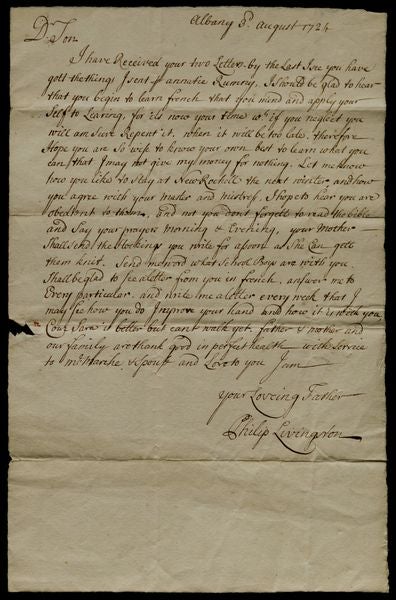 Albany 8d. August 1724
Dr. Son.
I have Received your two Letters by the Last I see you have
gott the things I sent p annatie Rumny. I should be glad to hear
that you begin to learn french that you mind and apply your
Self to Learing, for its now your time wch. if you neglect you
will am sure Repent it. when it will be too late, therefore
Hope you are So wise to know your own best to learn what you
Can, that I may not give my money for nothing. Let me know
how you like to stay at New Rochell the next winter, and how
you agree with your master and mistress. I hope to hear you are
obedient to them, and not you dont forgett to read the bible
and Say your prayers Morning & Evening, your Mother
Shall send the stockings you write for assoon as She Can gett
them knit. Send me word what School Boys are with you.
Shall be glad to See a letter from you in french, answer me to
Every particular. and write me a letter every week that I
may See how you do Improve your hand and how it is with you
Couz Sara is better but cant walk yet. father & mother and
our family are thank god in perfect health with Service
to mr. & Spouse and Love to you I am
your Loveing Father
Philip Livingston